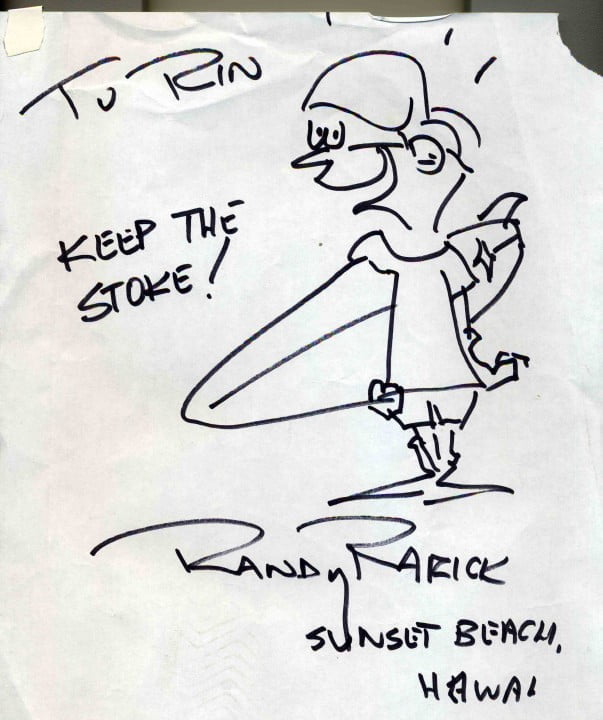 TO RIN
KEEP THE
STOKE!
RANDY RARICK
SUNSET BEACH,
HAWAI